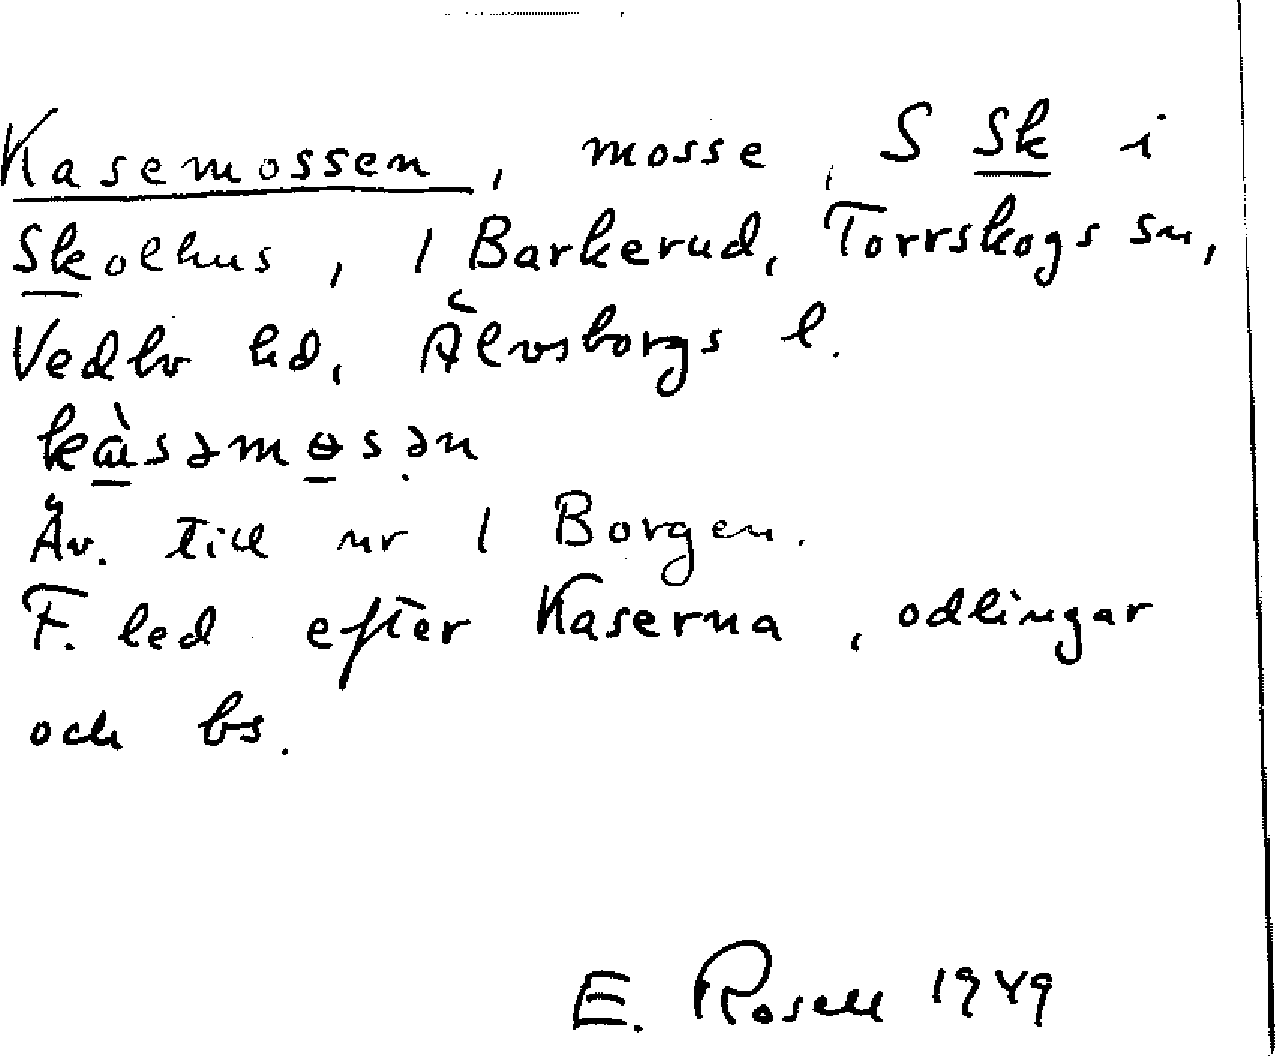 Kasemossen, mosse, S Sk i
Skolhus, 1 Barkerud, Torrskogs sn,
Vedbo hd, Älvsborgs l.
kàsəmɵsən
Äv. till nr 1 Borgen.
F. led efter Kaserna, odlingar
och bs.
E. Rosell 1949